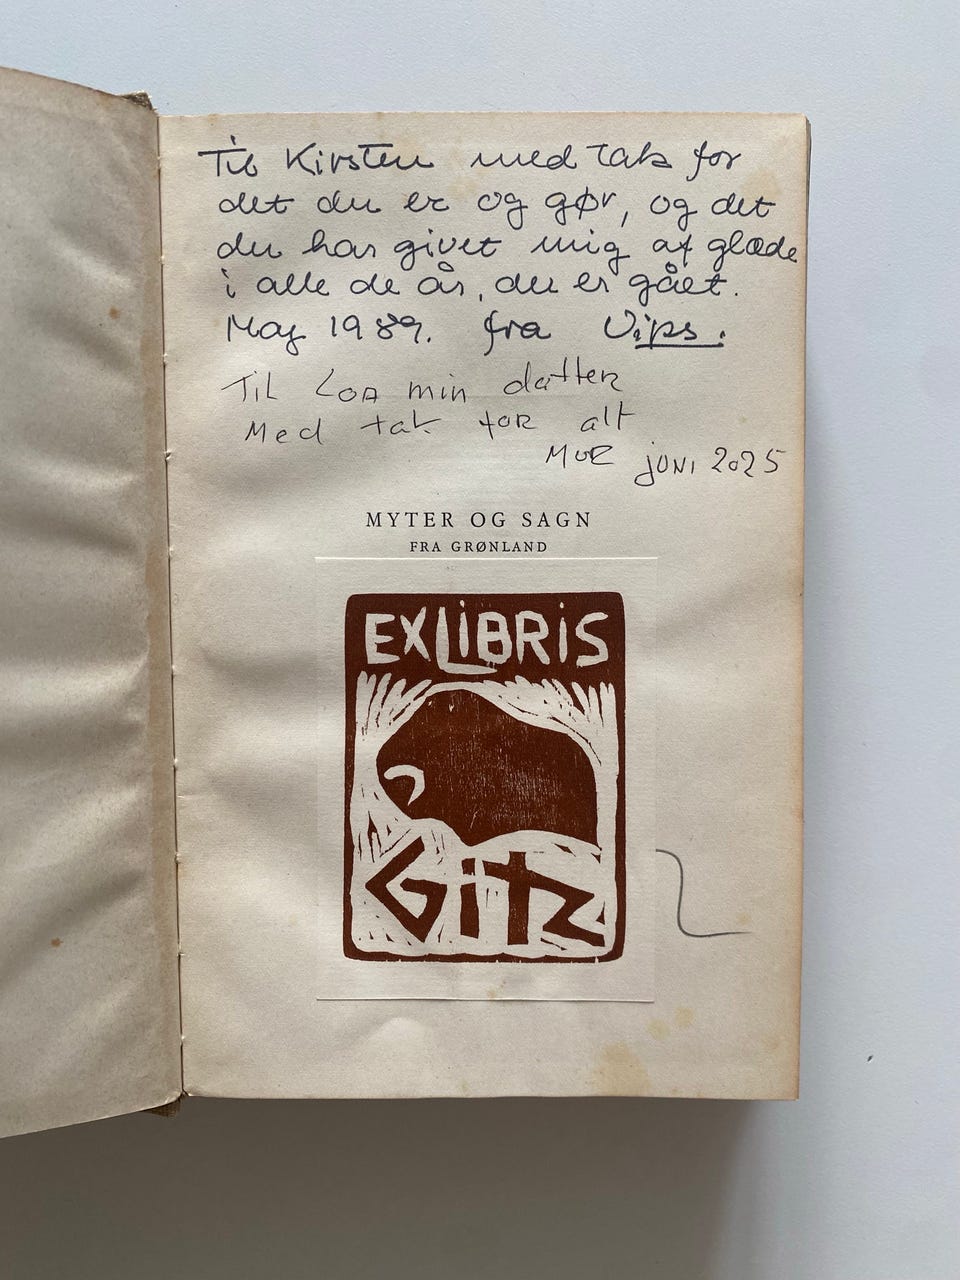 Til Kirsten med tak for
det du er og gør, og det
du har givet mig af glæde
i alle de år, der er gået.
Maj 1989. fra Vips.
Til Loa min datter
Med tak for alt
Mor juni 2025
MYTER OG SAGN
FRA GRØNLAND
EXLIBRIS
GITZ